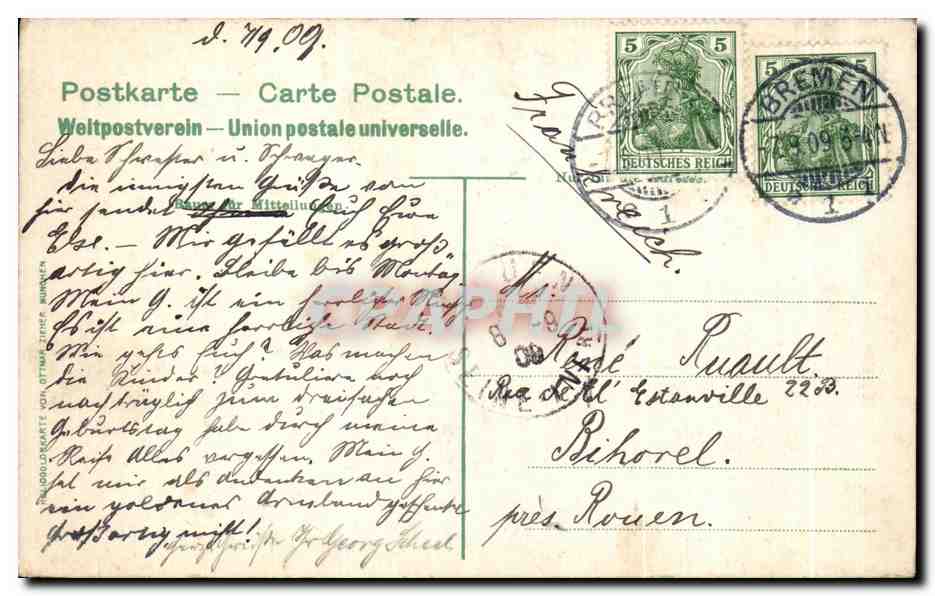 d. 7/9.09.
Postkarte — Carte Postale.
Weltpostverein — Union postale universelle.
Liebe Schwester u. Schwager.
Die innigsten Grüße von
hier sendet Euch Eure
Raum für Mitteilungen.
Else. — Mir gefällt es groß
artig hier. Bleibe bis Montag.
Mein G. ist ein herrlicher
Es ist eine herrliche Stadt.
Wie gehts Euch? Was machen
die Kinder? Gratuliere noch
nachträglich zum dreifachen
Geburtstag habe durch meine
Reise Alles vergessen. Mein G.
hat mir als Andenken an hier
ein goldenes Armband geschenkt
Großartig nicht!
Georg Scheel
HELIOCOLORKARTE VON OTTMAR ZIEHER, MÜNCHEN
5 5
DEUTSCHES REICH
5 5
DEUTSCHES REICH
BREMEN
1
BREMEN
-7.9.09.8-9N
1
Frankreich.
8 -9
09
SEINE
CPARPHIL
Ms.
René Ruault.
Rue de l' Estanville 22B.
Bihorel.
près Rouen.